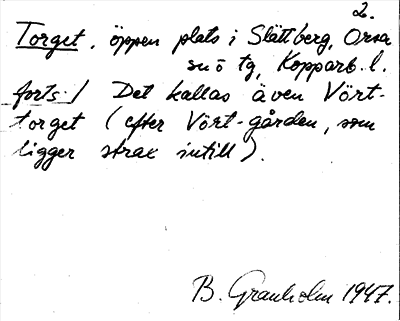 2.
Torget, öppen plats i Slättberg, Orsa
sn ö tg, Kopparb. l.
forts./ Det kallas även Vört-
torget (efter Vört-gården, som
ligger strax intill).
B. Granholm 1947.